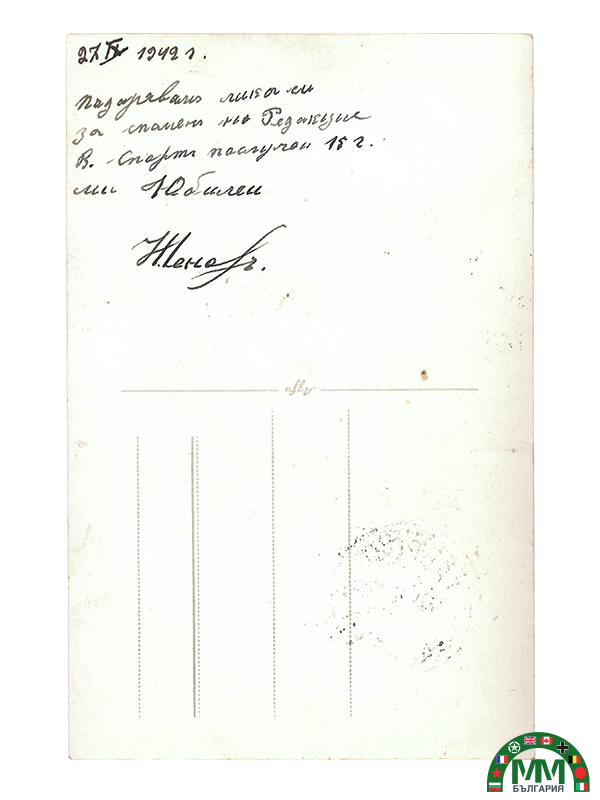 27 IV 1942 г.
Подарявамъ лика си
за спомень на Редакция
В. Спортъ послучай 15 г.
ми Юбилеи
Н.Ценовъ.
Agfa
ММ
БЪЛГАРИЯ